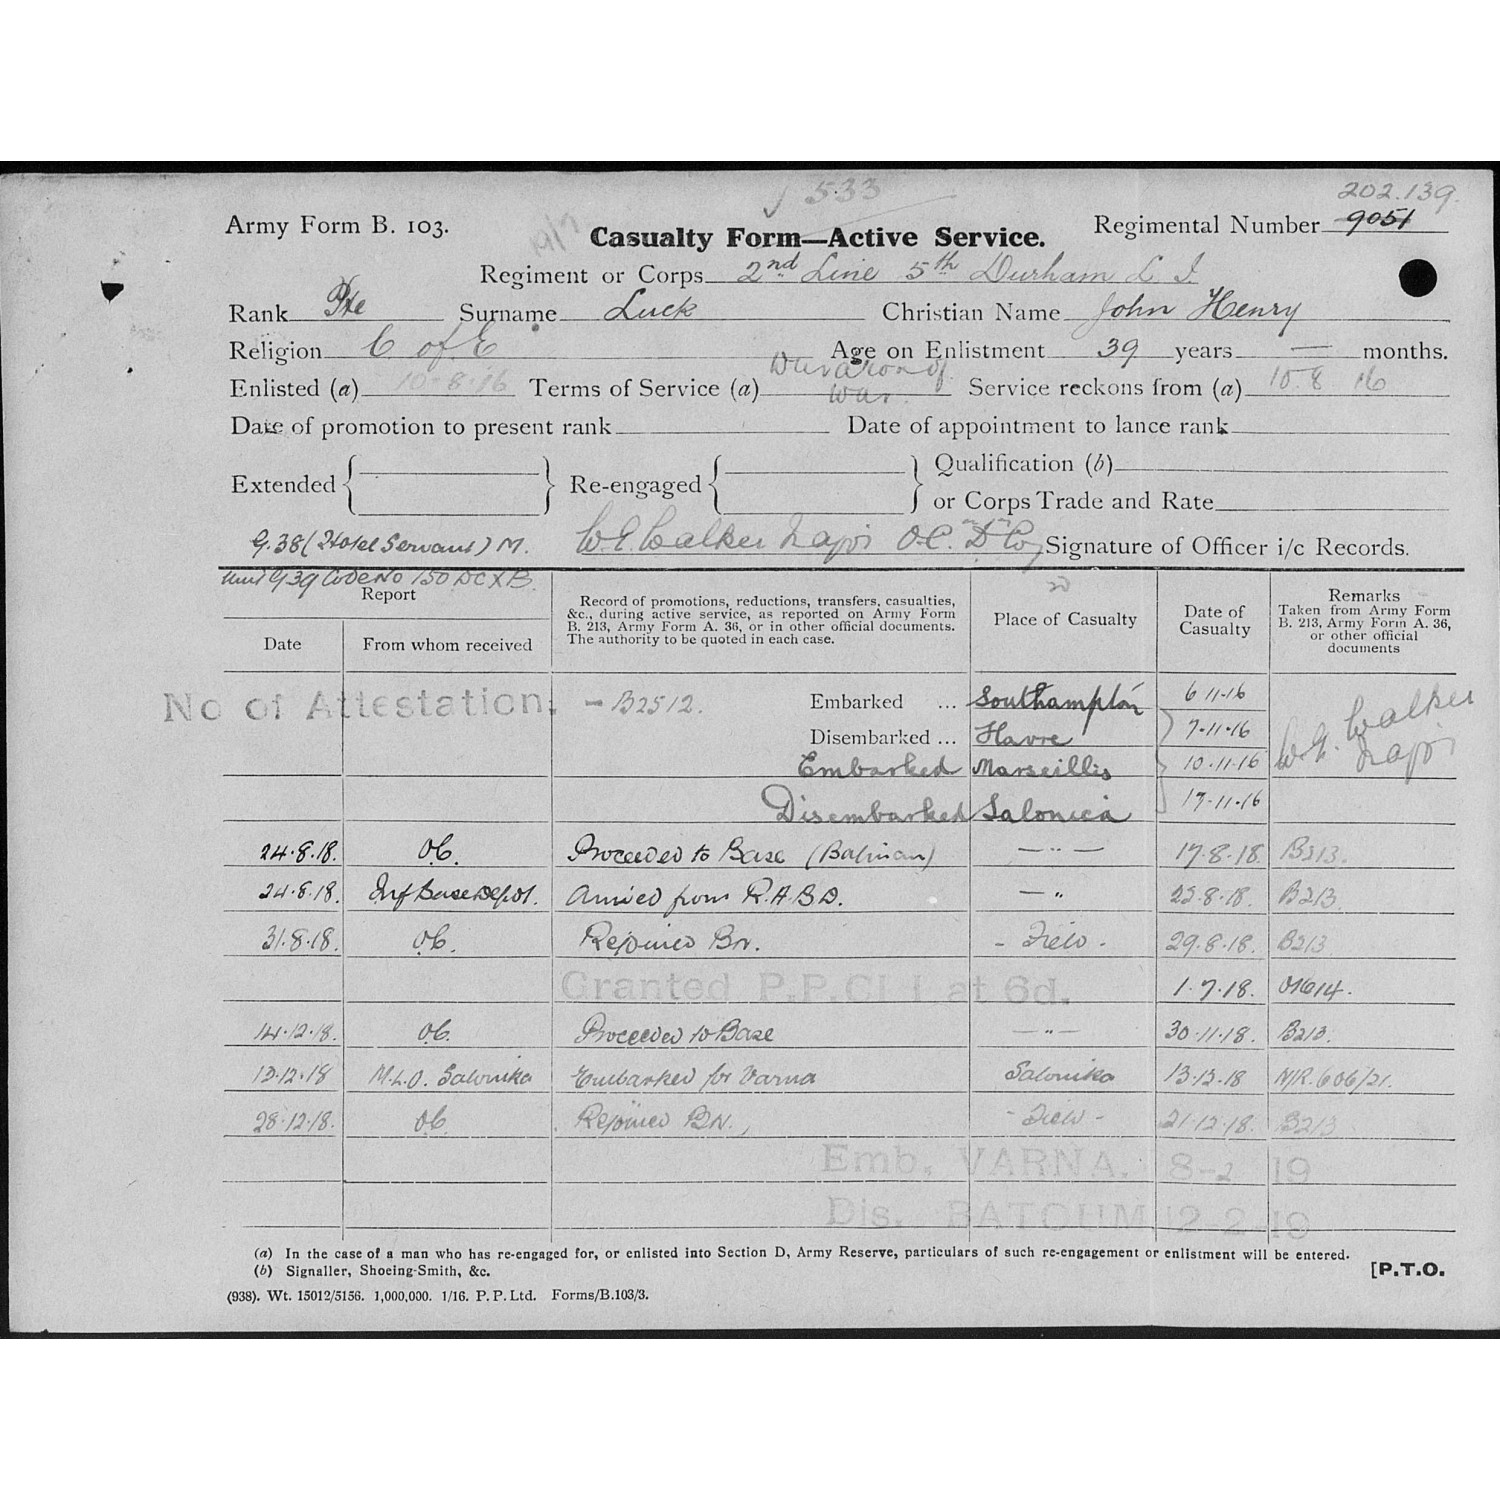 533
202.139.
Army Form B. 103.
Casualty Form—Active Service.
Regimental Number 9051
Regiment or Corps 2nd Line 5th Durham L. I.
Rank Pte Surname Luck Christian Name John Henry
Religion C of E Age on Enlistment 39 years — months.
Enlisted (a) 10-8-16 Terms of Service (a) Duration of War. Service reckons from (a) 10.8 16
Date of promotion to present rank Date of appointment to lance rank
Extended Re-engaged Qualification (b)
or Corps Trade and Rate
G.38 (Hotel Servant) M. W.E. Walker Major O.C. "D" Coy Signature of Officer i/c Records.
G39 Code No 150 DCXB.
Report
Date
From whom received
Record of promotions, reductions, transfers, casualties, &c., during active service, as reported on Army Form B. 213, Army Form A. 36, or in other official documents. The authority to be quoted in each case.
Place of Casualty
Date of Casualty
Remarks
Taken from Army Form B. 213, Army Form A. 36, or other official documents
No of Attestation. - B2512. Embarked ... Southampton 6 11-16
Disembarked ... Havre 7-11-16 W.E. Walker Major
Embarked Marseilles 10-11-16
Disembarked Salonica 17-11-16
24.8.18. OC. Proceeded to Base (Batman) — " — 17-8-18. B213.
24.8.18. Inf Base Depot. Arrived from R.A.B.D. — " 23-8-18. B213
31.8.18. OC. Rejoined Bn. - Field - 29-8-18. B213
Granted P.P. Cl I at 6d. 1.7.18. O1614.
14.12.18. OC. Proceeded to Base — " — 30-11-18. B213.
13.12.18 M.L.O. Salonika Embarked for Varna Salonika 13-12-18 N/R. 606/21.
28.12.18. OC. Rejoined Bn. - Field - 21-12-18. B213
Emb. VARNA. 8-2 19
Dis. BATOUM 12-2-19
(a) In the case of a man who has re-engaged for, or enlisted into Section D, Army Reserve, particulars of such re-engagement or enlistment will be entered.
(b) Signaller, Shoeing-Smith, &c.
[P.T.O.
(938). Wt. 15012/5156. 1,000,000. 1/16. P. P. Ltd. Forms/B.103/3.